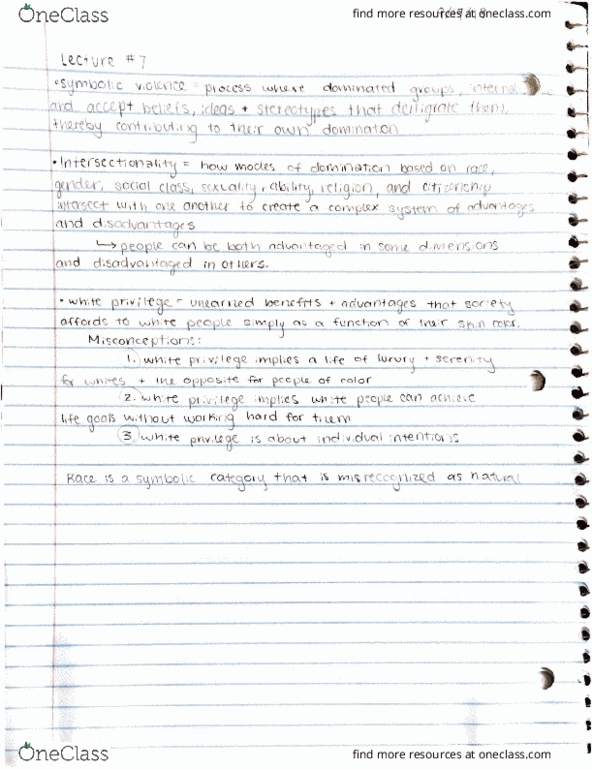 OneClass
find more resources at oneclass.com
Lecture #7
•symbolic violence = process where dominated groups,
and accept beliefs, ideas + stereotypes that denigrate them,
thereby contributing to their own domination
•Intersectionality = how modes of domination based on race,
gender, social class, sexuality, ability, religion, and citizenship
intersect with one another to create a complex system of advantages
and disadvantages
↳people can be both advantaged in some dimensions
and disadvantaged in others.
• white privilege - unearned benefits + advantages that society
affords to white people simply as a function of their skin color.
Misconceptions:
1. white privilege implies a life of luxury + serenity
for whites + the opposite for people of color
2. white privilege implies white people can achieve
life goals without working hard for them
3 white privilege is about individual intentions
Race is a symbolic category that is misrecognized as natural
OneClass
find more resources at oneclass.com